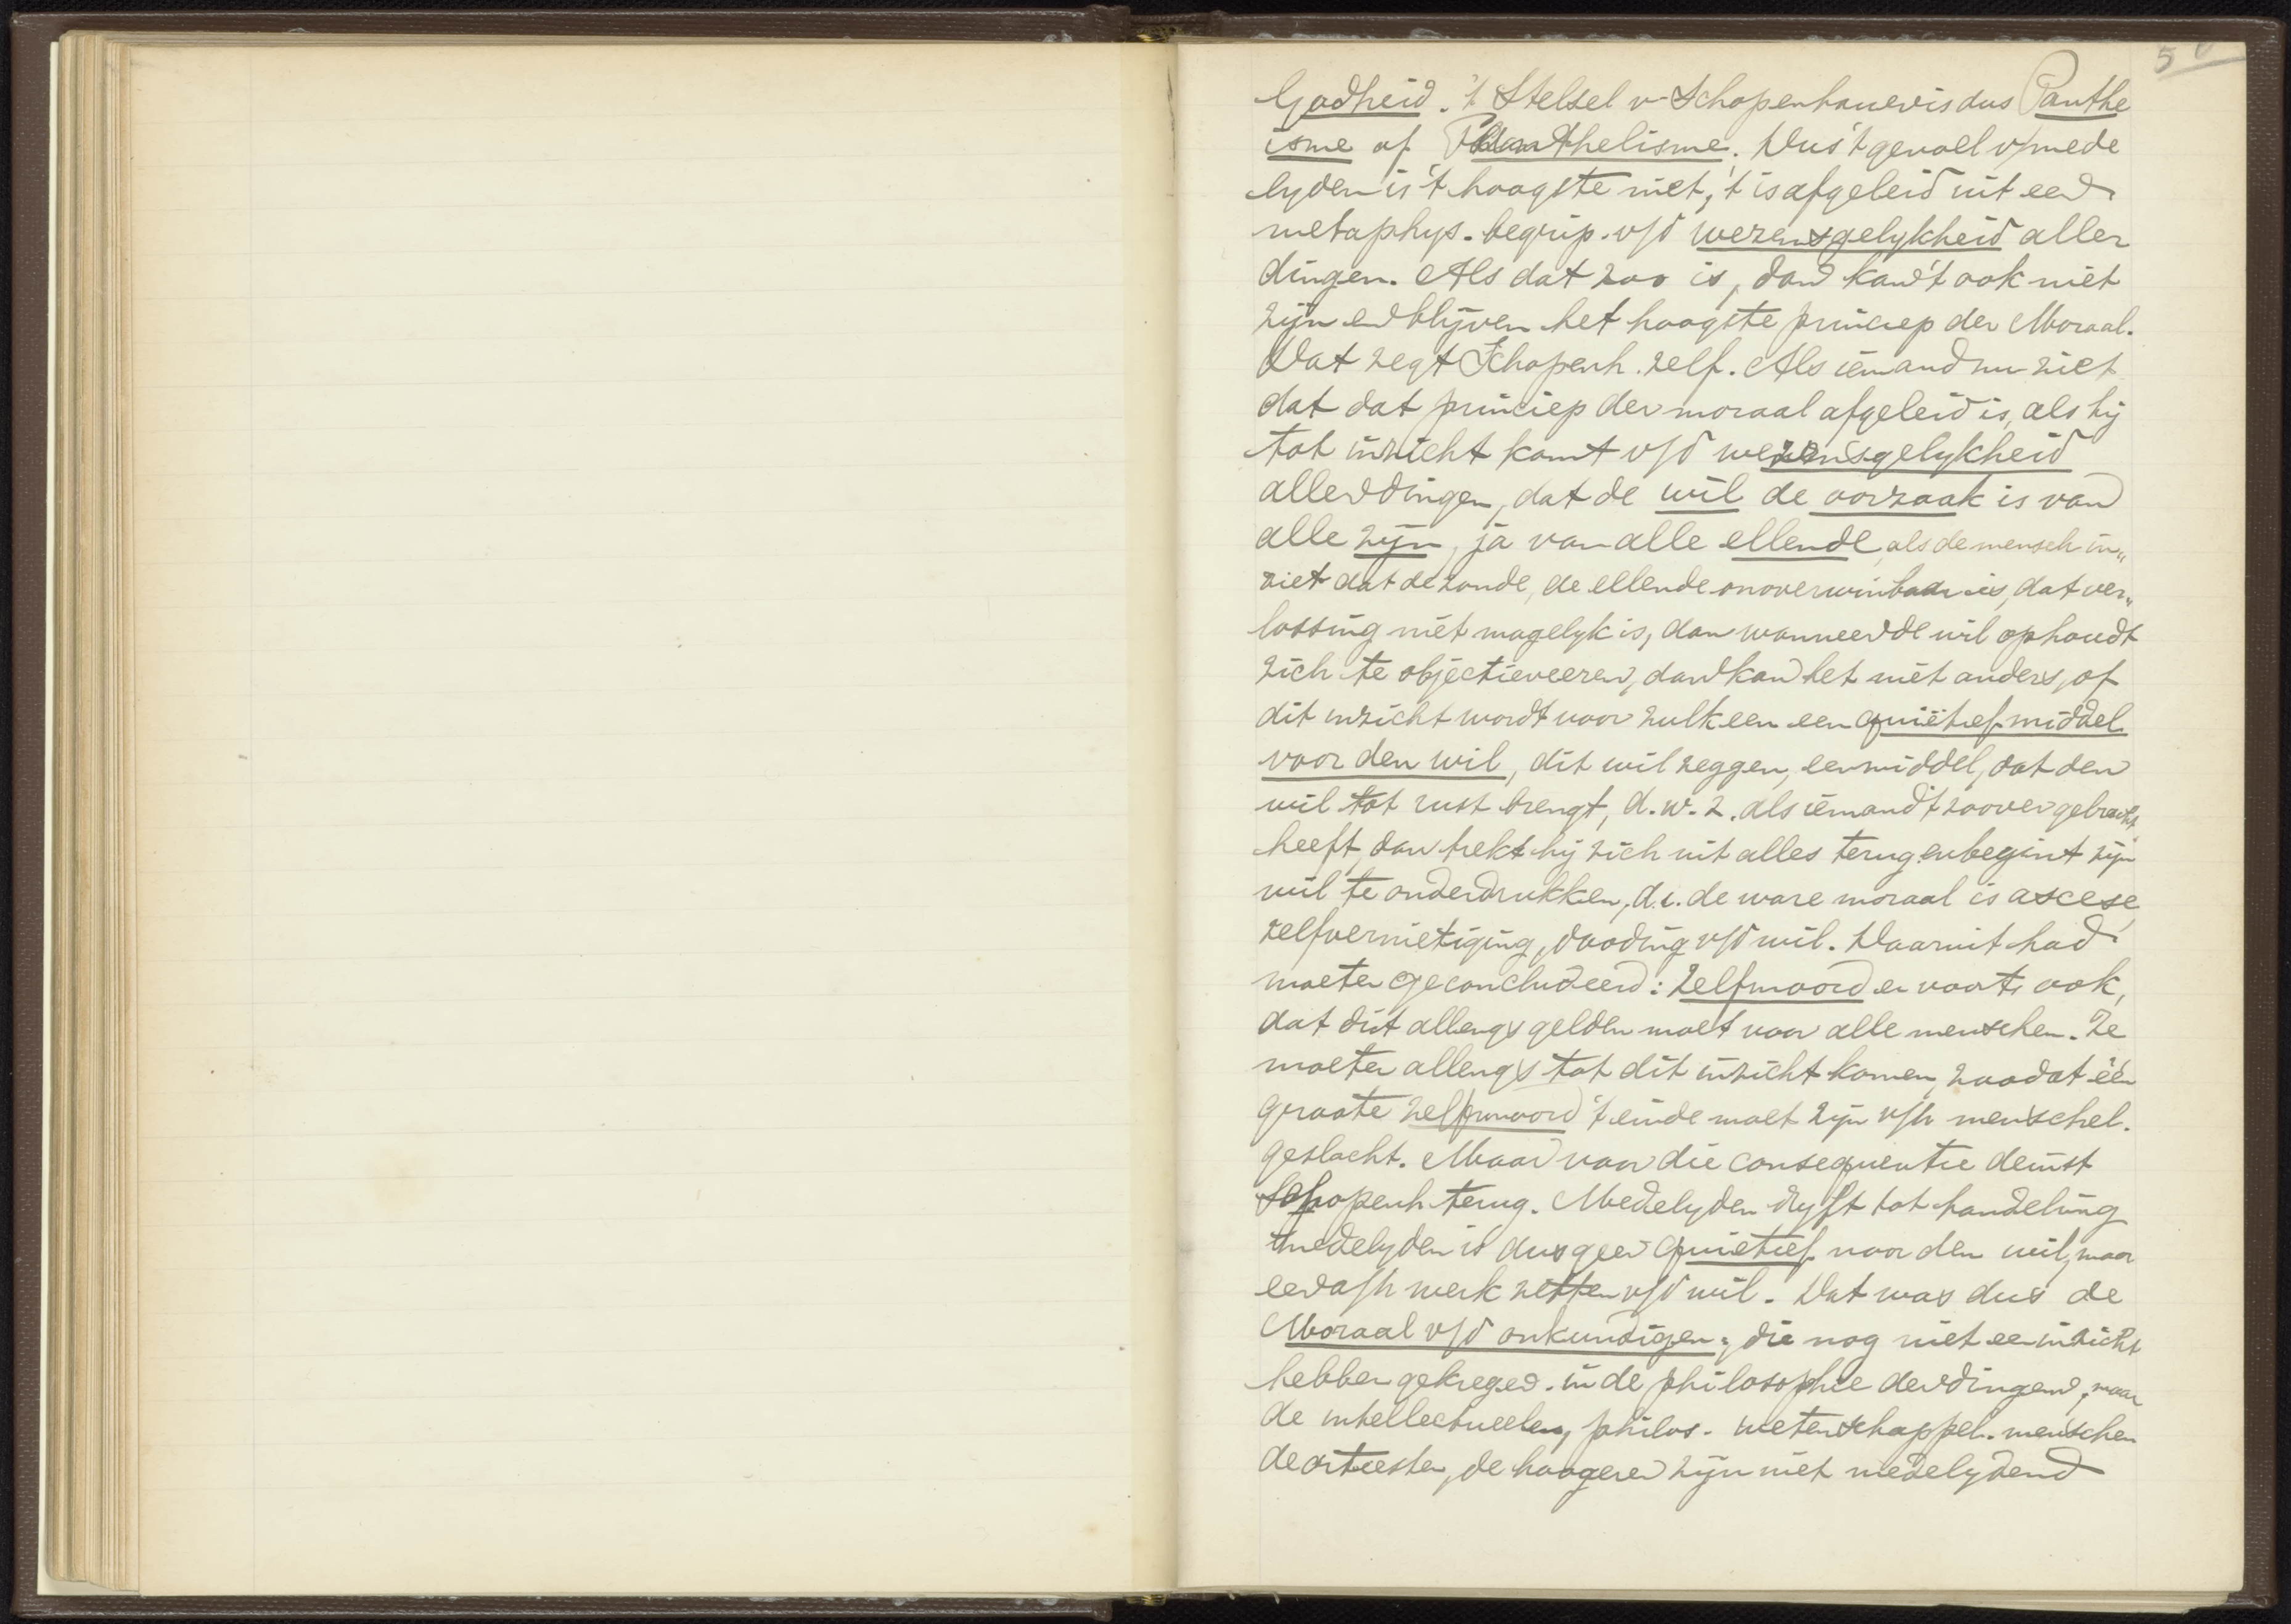 50
Godheid. 't Stelsel v. Schopenhauer is dus Panthe
isme of Panthelisme. Dus 't gevoel v/mede
lyden is 't hoogste niet, 't is afgeleid uit een
metaphys. begrip. v/d wezensgelykheid aller
dingen. Als dat zoo is, dan kan 't ook niet
zijn en blijven het hoogste princiep der Moraal.
Dat zegt Schopenh. zelf. Als iemand nu ziet
dat dat princiep der moraal afgeleid is, als hij
tot inzicht komt v/d wezensgelykheid
aller dingen, dat de wil de oorzaak is van
alle zijn, ja van alle ellende, als de mensch in„
ziet dat de zonde, de ellende onoverwinbaar is, dat ver„
lossing niet mogelyk is, dan wanneer de wil ophoudt
zich te objectieveeren, dan kan het niet anders, of
dit inzicht wordt voor zulk een een quiëtief middel
voor den wil, dit wil zeggen, een middel, dat den
wil tot rust brengt, d.w.z. als iemand 't zoover gebracht
heeft, dan trekt hij zich uit alles terug en begint zijn
wil te onderdrukken, d.i. de ware moraal is ascese,
zelfvernietiging, dooding v/d wil. Daaruit had
moeten geconcludeerd: zelfmoord en voorts ook,
dat dit allengs gelden moet voor alle menschen. Ze
moeten allengs tot dit inzicht komen, zoodat één
groote zelfmoord 't einde moet zijn v/h menschel.
geslacht. Maar voor die consequentie deinst
Schopenh terug. Medelyden dryft tot handeling
medelyden is dus geen quietief voor den wil, maar
een a/h werk zetten v/d wil. Dat was dus de
Moraal v/d onkundigen; die nog niet een inzicht
hebben gekregen. in de philosophie der dingen, maar
de intellectueelen, philos. wetenschappel. menschen
de artiesten, de hoogeren zijn niet medelydend